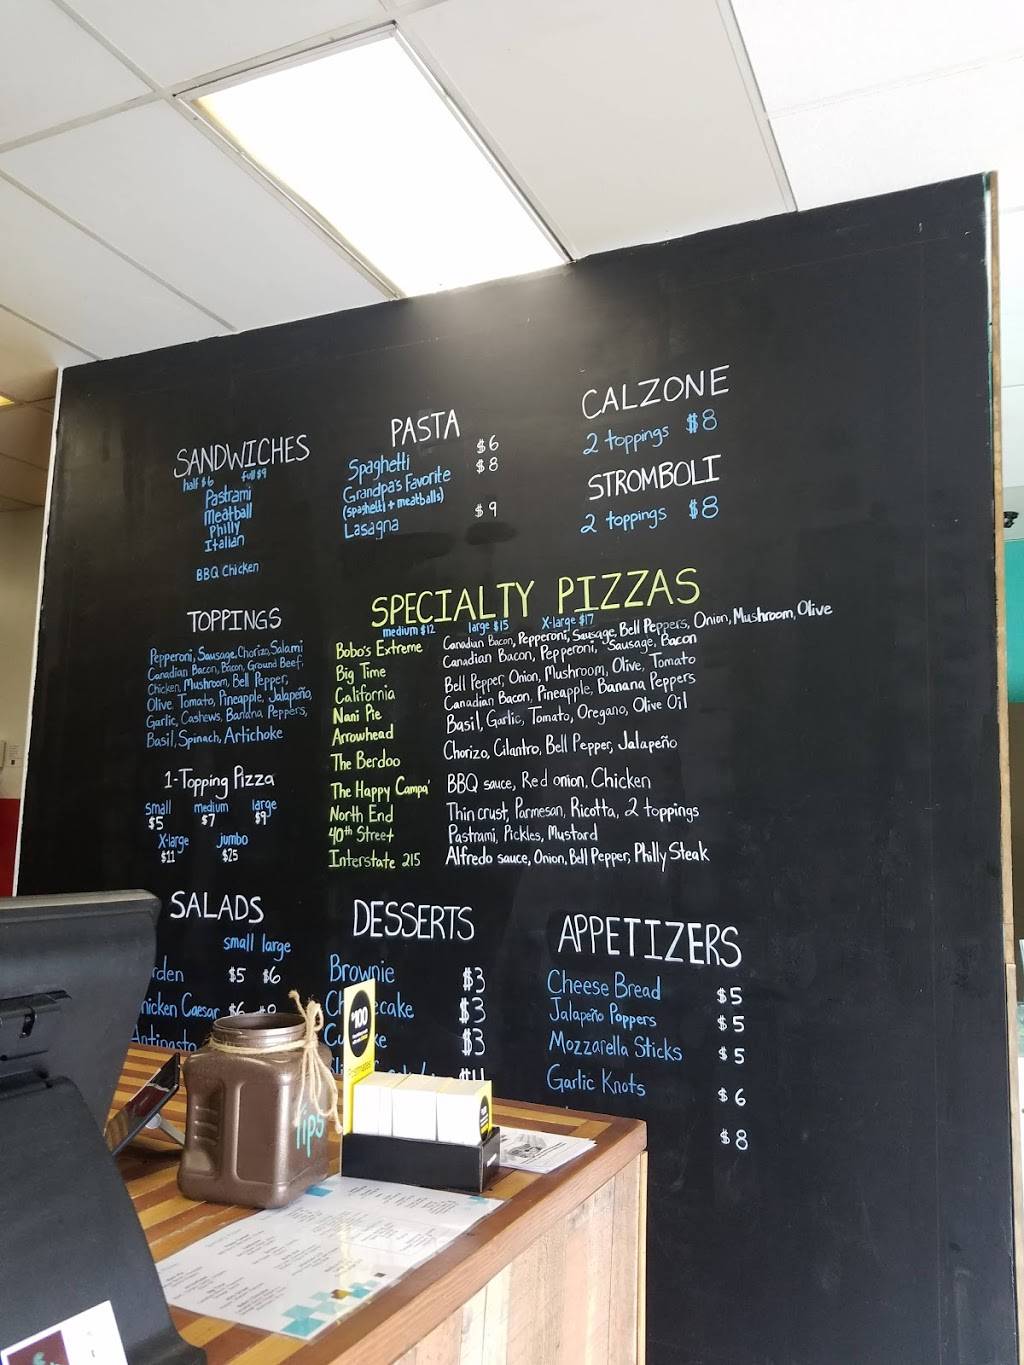 SANDWICHES
half $6 full $9
Pastrami
Meatball
Philly
Italian
BBQ Chicken
PASTA
Spaghetti $6
Grandpa's Favorite $8
(spaghetti + meatballs)
Lasagna $9
CALZONE
2 toppings $8
STROMBOLI
2 toppings $8
TOPPINGS
Pepperoni, Sausage, Chorizo, Salami
Canadian Bacon, Bacon, Ground Beef,
Chicken, Mushroom, Bell Pepper,
Olive, Tomato, Pineapple, Jalapeño,
Garlic, Cashews, Banana Peppers,
Basil, Spinach, Artichoke
1-Topping Pizza
small medium large
$5 $7 $9
X-large jumbo
$11 $25
SPECIALTY PIZZAS
medium $12 large $15 X-large $17
Bobo's Extreme Canadian Bacon, Pepperoni, Sausage, Bell Peppers, Onion, Mushroom, Olive
Big Time Canadian Bacon, Pepperoni, Sausage, Bacon
California Bell Pepper, Onion, Mushroom, Olive, Tomato
Nani Pie Canadian Bacon, Pineapple, Banana Peppers
Arrowhead Basil, Garlic, Tomato, Oregano, Olive Oil
The Berdoo Chorizo, Cilantro, Bell Pepper, Jalapeño
The Happy Campa' BBQ sauce, Red onion, Chicken
North End Thin crust, Parmesan, Ricotta, 2 toppings
40th Street Pastrami, Pickles, Mustard
Interstate 215 Alfredo sauce, Onion, Bell Pepper, Philly Steak
SALADS
small large
rden $5 $6
hicken Caesar $6
Antipasto
DESSERTS
Brownie $3
Ch ecake $3
Cu ke $3
$4
APPETIZERS
Cheese Bread $5
Jalapeño Poppers $5
Mozzarella Sticks $5
Garlic Knots $6
$8
Tips
$100